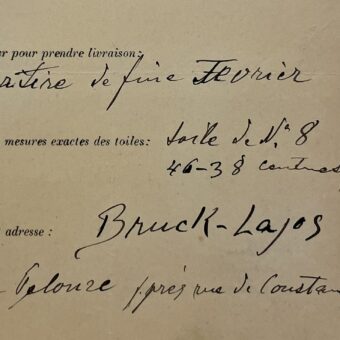 ur pour prendre livraison:
artire de fine Fevrier
mesures exactes des toiles: toile de Nº 8
46-38 centmes
adresse: Bruck-Lajos
Pelouze près rue de Constan